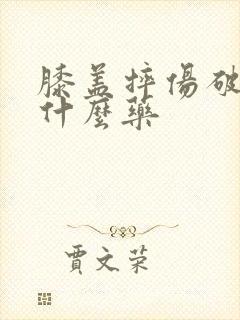 膝盖摔傷破
什麼藥
賈文荣